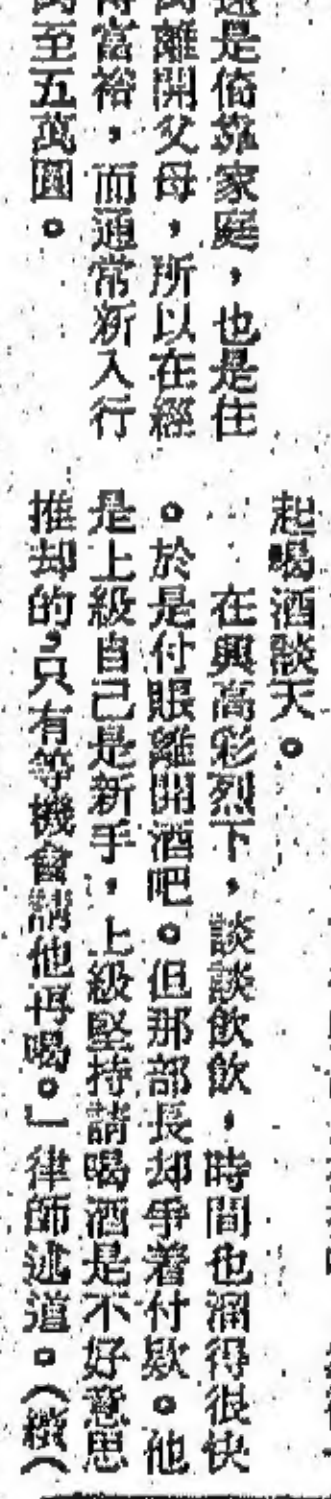 還是倚靠家庭，也是住
離開父母，所以在經
富裕，而通常新入行
至五萬圓。
起喝酒談天。
在興高彩烈下，談談飲飲，時間也溜得很快
。於是付賬離開酒吧。但那部長却爭着付款。他
是上級自己是新手，上級堅持請喝酒是不好意思
推却的，只有等機會請他再喝。」律師述道。（